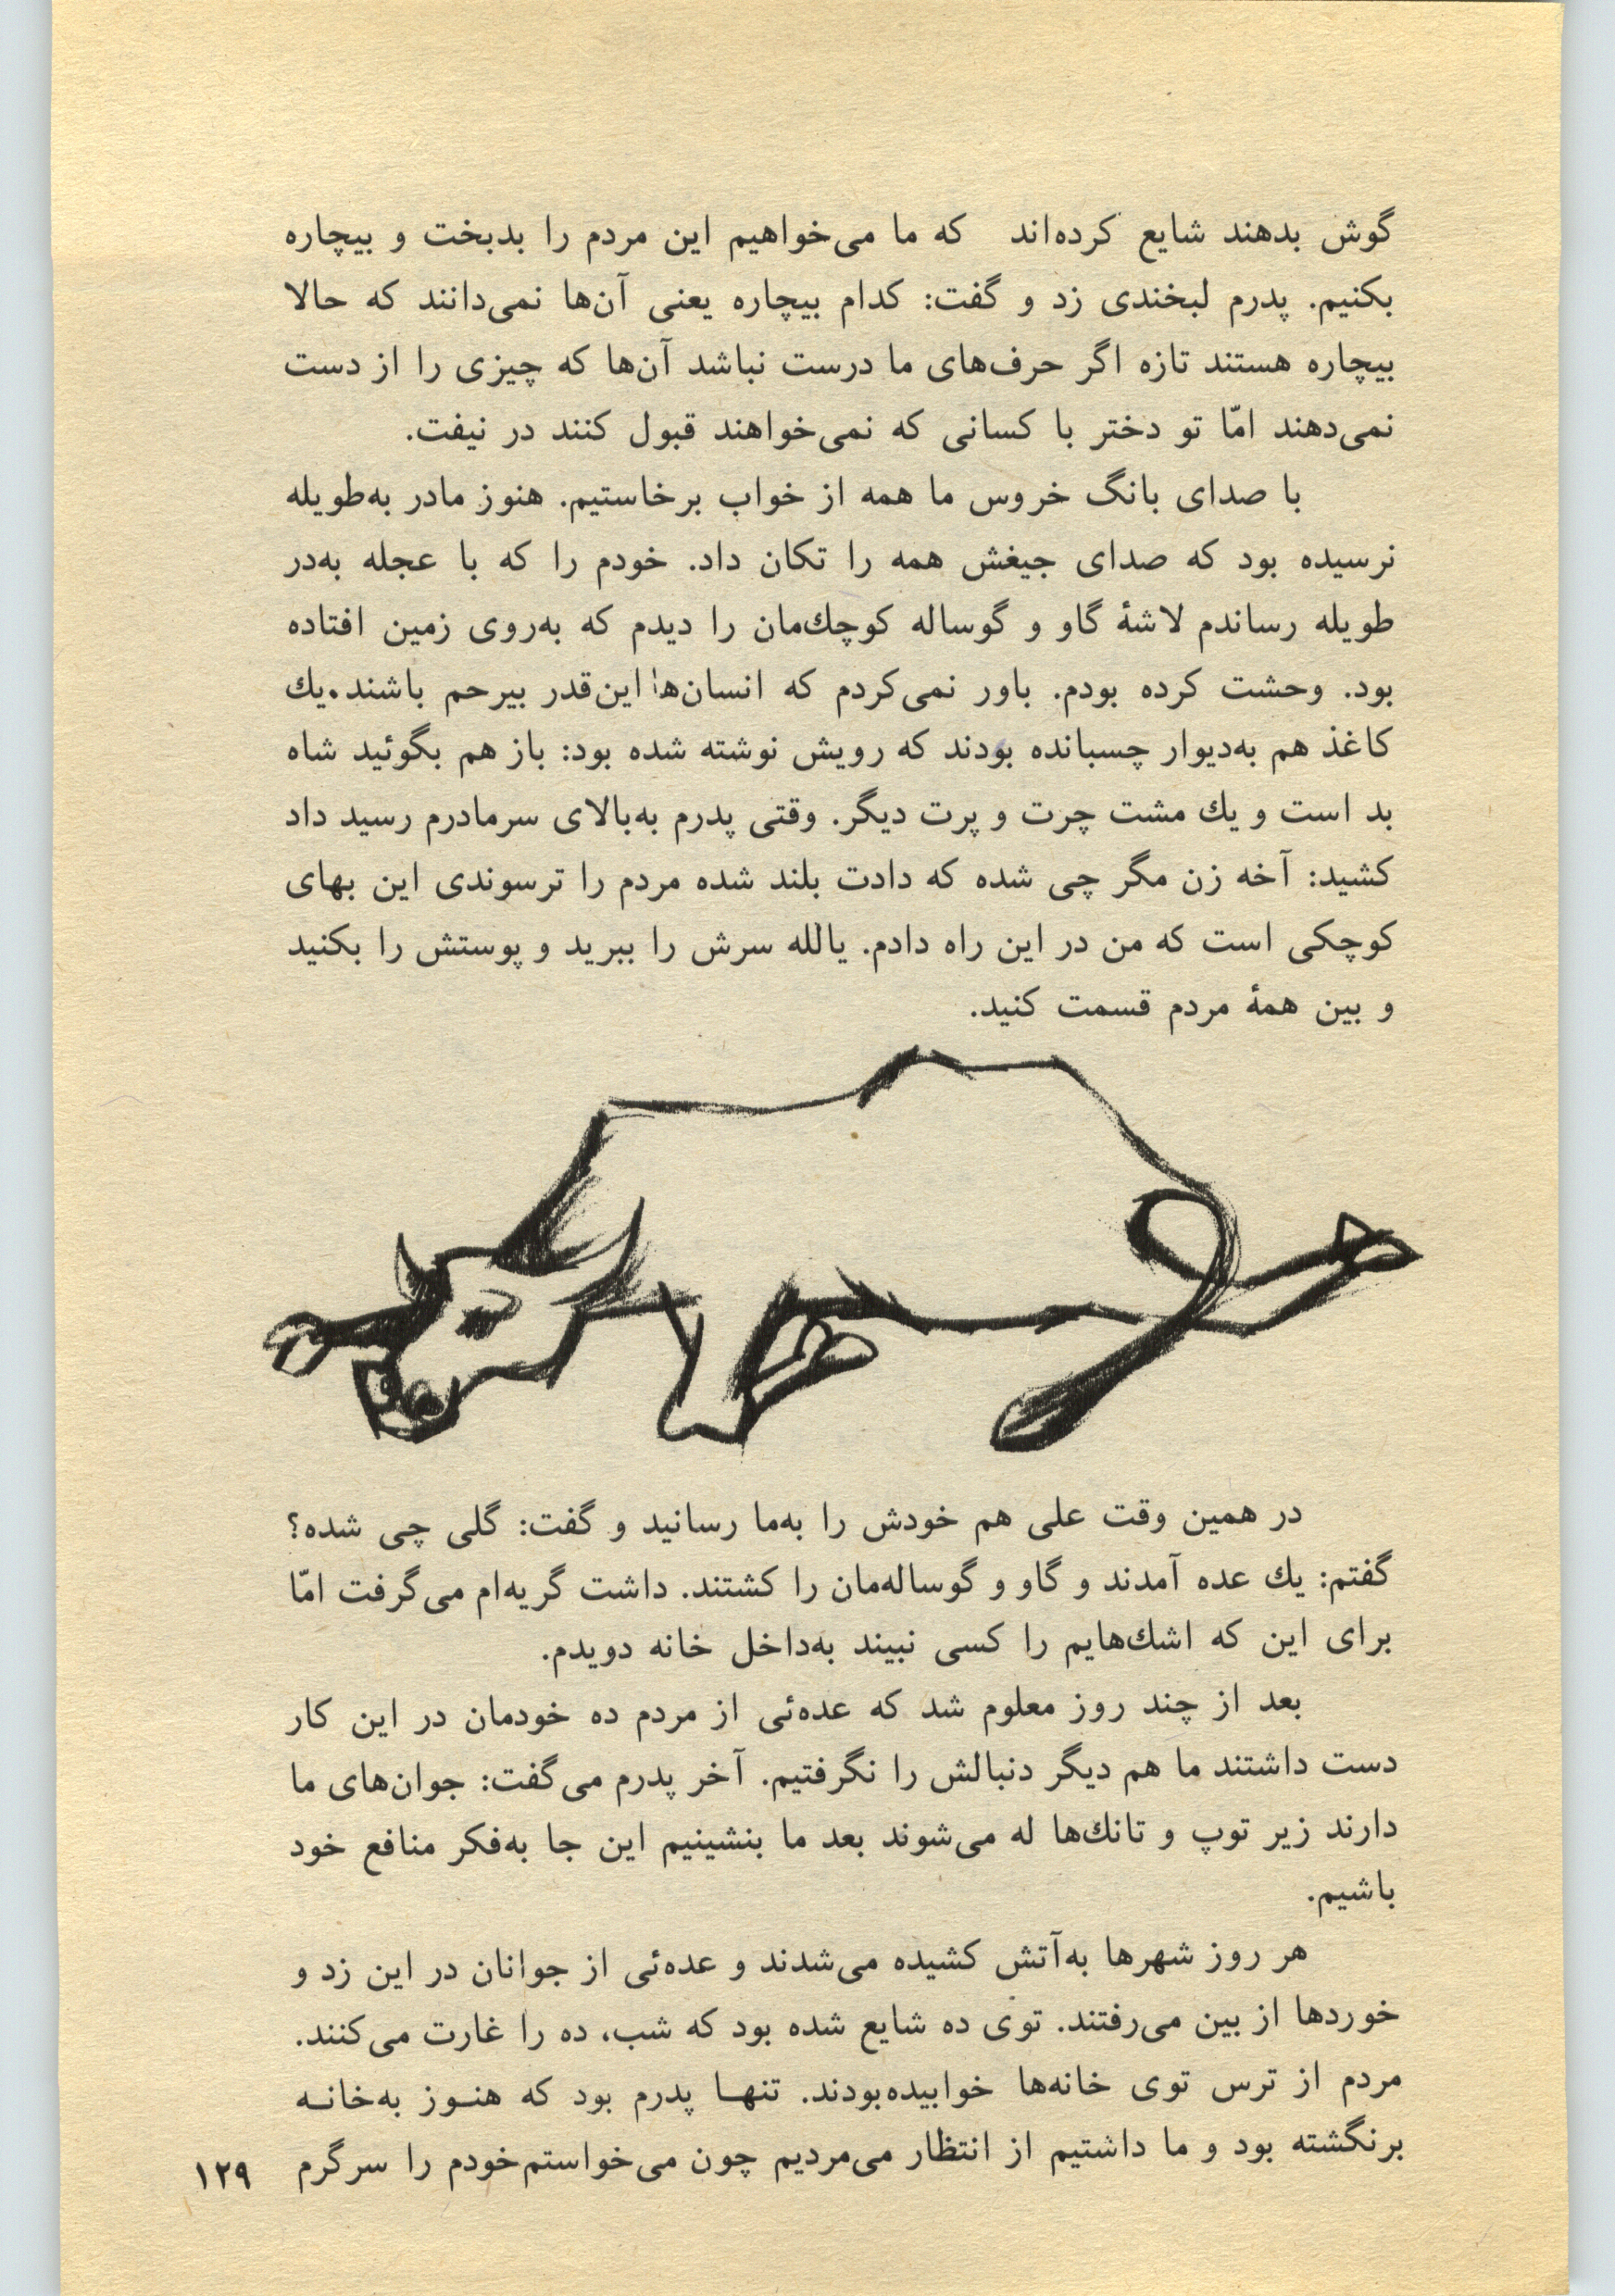 گوش بدهند شایع کرده‌اند که ما می‌خواهیم این مردم را بدبخت و بیچاره
بکنیم. پدرم لبخندی زد و گفت: کدام بیچاره یعنی آن‌ها نمی‌دانند که حالا
بیچاره هستند تازه اگر حرف‌های ما درست نباشد آن‌ها که چیزی را از دست
نمی‌دهند امّا تو دختر با کسانی که نمی‌خواهند قبول کنند در نیفت.
با صدای بانگ خروس ما همه از خواب برخاستیم. هنوز مادر به‌طویله
نرسیده بود که صدای جیغش همه را تکان داد. خودم را که با عجله به‌در
طویله رساندم لاشهٔ گاو و گوساله کوچك‌مان را دیدم که به‌روی زمین افتاده
بود. وحشت کرده بودم. باور نمی‌کردم که انسان‌ها این‌قدر بیرحم باشند.یك
کاغذ هم به‌دیوار چسبانده بودند که رویش نوشته شده بود: باز هم بگوئید شاه
بد است و یك مشت چرت و پرت دیگر. وقتی پدرم به‌بالای سرمادرم رسید داد
کشید: آخه زن مگر چی شده که دادت بلند شده مردم را ترسوندی این بهای
کوچکی است که من در این راه دادم. یالله سرش را ببرید و پوستش را بکنید
و بین همهٔ مردم قسمت کنید.
در همین وقت علی هم خودش را به‌ما رسانید و گفت: گلی چی شده؟
گفتم: یك عده آمدند و گاو و گوساله‌مان را کشتند. داشت گریه‌ام می‌گرفت امّا
برای این که اشك‌هایم را کسی نبیند به‌داخل خانه دویدم.
بعد از چند روز معلوم شد که عده‌ئی از مردم ده خودمان در این کار
دست داشتند ما هم دیگر دنبالش را نگرفتیم. آخر پدرم می‌گفت: جوان‌های ما
دارند زیر توپ و تانك‌ها له می‌شوند بعد ما بنشینیم این جا به‌فکر منافع خود
باشیم.
هر روز شهرها به‌آتش کشیده می‌شدند و عده‌ئی از جوانان در این زد و
خوردها از بین می‌رفتند. توی ده شایع شده بود که شب، ده را غارت می‌کنند.
مردم از ترس توی خانه‌ها خوابیده‌بودند. تنهـا پدرم بود که هنـوز به‌خانـه
برنگشته بود و ما داشتیم از انتظار می‌مردیم چون می‌خواستم‌خودم را سرگرم
۱۲۹